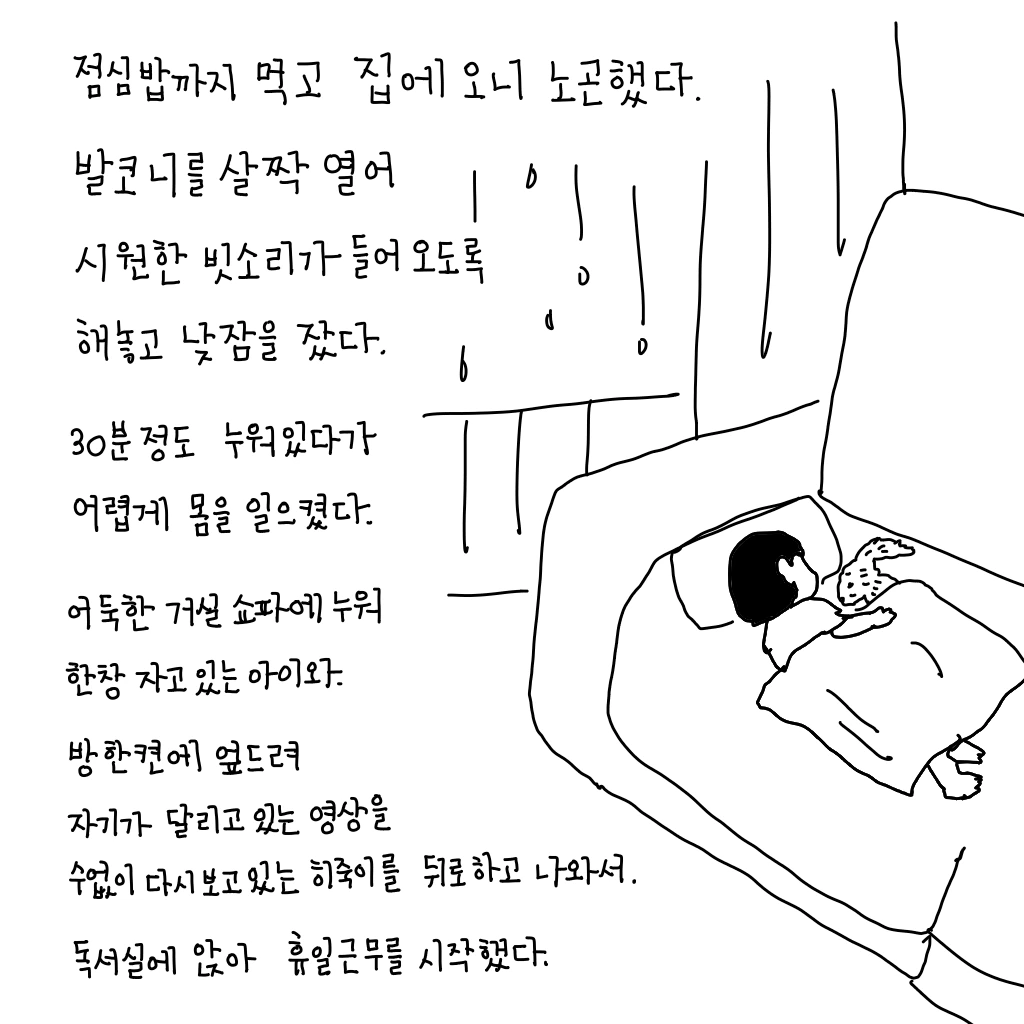 점심밥까지 먹고 집에 오니 노곤했다.
발코니를 살짝 열어
시원한 빗소리가 들어오도록
해놓고 낮잠을 잤다.
30분 정도 누워있다가
어렵게 몸을 일으켰다.
어둑한 거실 쇼파에 누워
한창 자고 있는 아이와.
방 한켠에 엎드려
자기가 달리고 있는 영상을
수없이 다시보고 있는 히죽이를 뒤로하고 나와서.
독서실에 앉아 휴일근무를 시작했다.